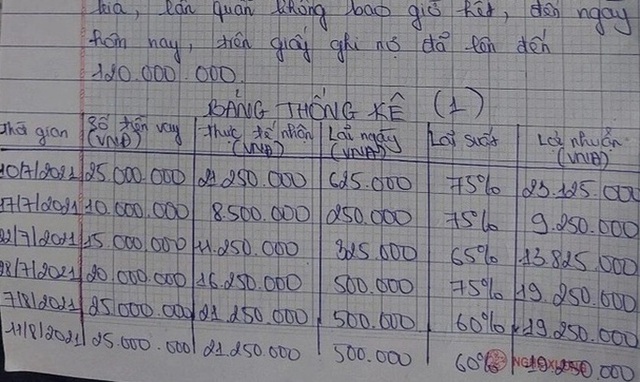 kia, lần quần không bao giờ hết, đến ngày
hôm nay, tiền giấy ghi nợ đã lên đến
120.000.000.
BẢNG THỐNG KÊ (1)
Thời gian Số tiền vay (VNĐ) Thực tế nhận (VNĐ) Lãi ngày (VNĐ) Lãi suất Lợi nhuận (VNĐ)
10/7/2021 25.000.000 21.250.000 625.000 75% 23.125.000
17/7/2021 10.000.000 8.500.000 250.000 75% 9.250.000
22/7/2021 15.000.000 11.250.000 325.000 65% 13.825.000
28/7/2021 20.000.000 16.250.000 500.000 75% 19.250.000
7/8/2021 25.000.000 21.250.000 500.000 60% 19.250.000
11/8/2021 25.000.000 21.250.000 500.000 60% 19.250.000